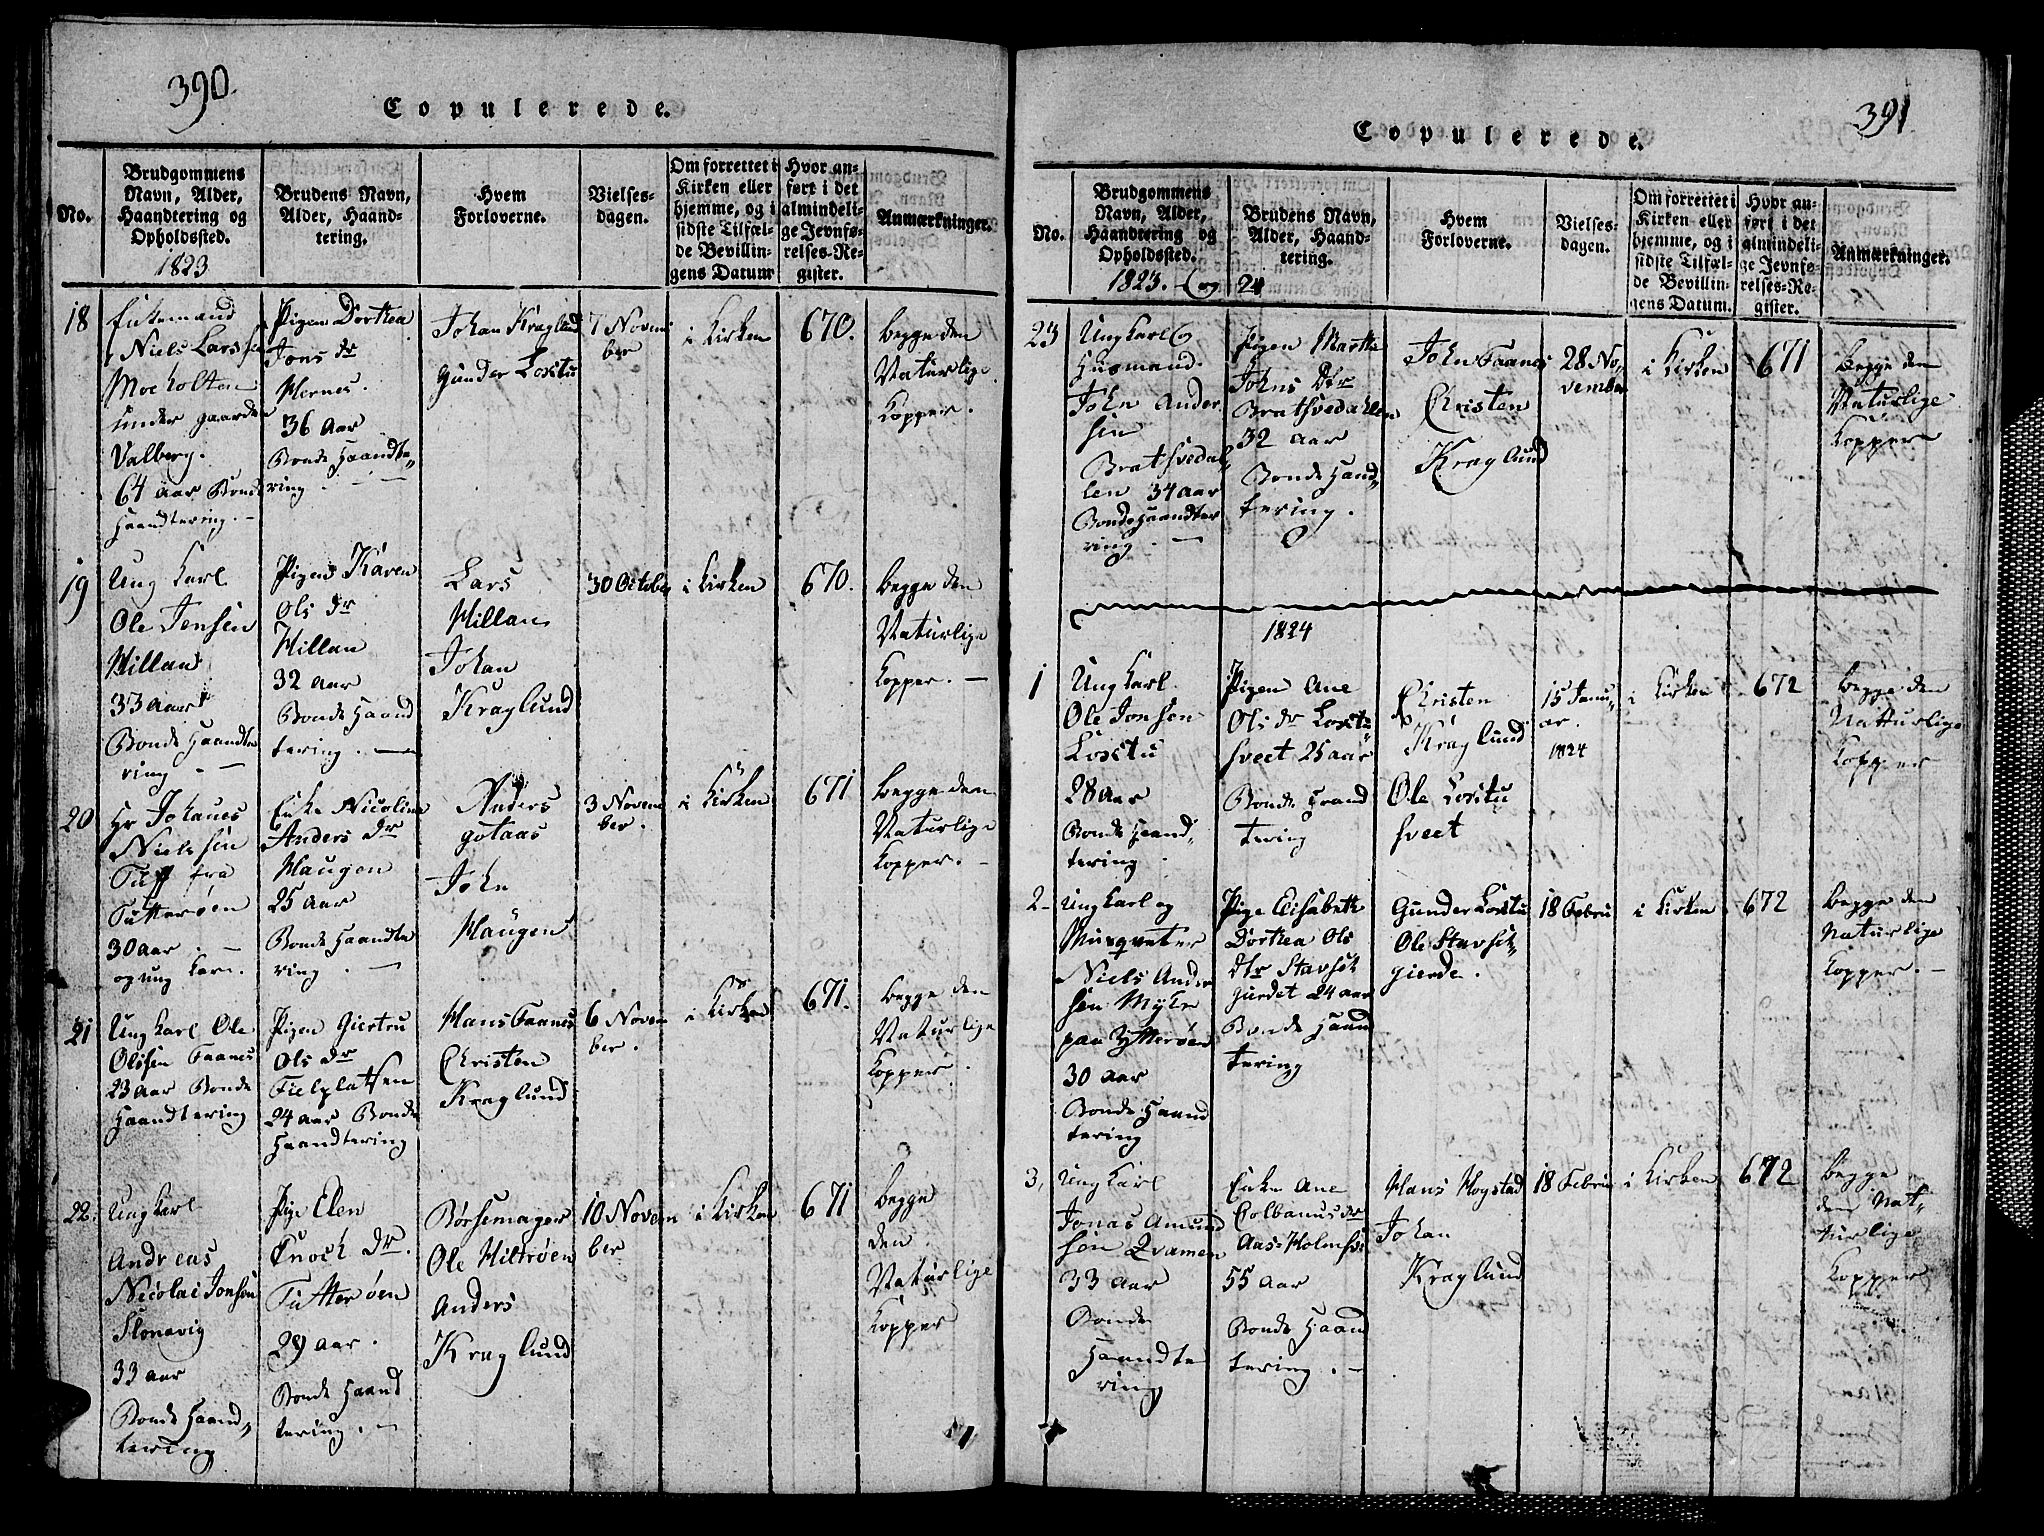 390.
Copulerede.
No.
Brudgommens
Navn, Alder,
Haandtering og
Opholdssted.
1823
Brudens Navn,
Alder, Haand-
tering.
Hvem
Forloverne.
Vielses-
dagen.
Om forrettet i
Kirken eller
hjemme, og i
sidste Tilfæl-
de Bevillin-
gens Datum
Hvor an-
ført i det
almindeli-
ge Jevnfø-
relses-Re-
gister.
Anmærkninger.
18
Enkemand
Niels Larssen
Moeholten
under gaarden
Valberg.
64 Aar Bonde
Haandtering. —
Pigen Dorthea
Jons dr
Mernes.
36 Aar
Bonde Haandte,,
ring. — —
Johan Kraglund
Gunder Loxtu
7 Novem
ber
i Kirken
670.
begge den
Naturlige
Kopper.
19
Ung Karl
Ole Jensen
Millan
33 Aar
Bonde Haandte
ring. —
Pigen Karen
Ols dr
Millan
32 Aar
Bonde Haand
tering. —
Lars
Millan
Johan
Kraglund
30 October
i Kirken
670.
begge den
Naturlige
Kopper. —
20
Hr Johanes
Nielssen
Tuff fra
Tutterøen
30 aar. —
og ung Karl.
Enke Nicoline
Anders dr
Haugen
25 Aar
Bonde Haandte
ring. —
Anders
gotaas
John
Haugen
3 Novem
ber.
i Kirken
671
begge den
Naturlige
Kopper. —
21
Ung Karl Ole
Olssen Faanes
23 Aar Bonde
Haandtering
Pigen Giertru
Ols dr
Fielplatsen
24 Aar Bonde
Haandtering
Hans Faanes
Christen
Kraglund
6 Novem
ber.
i Kirken
671.
begge den
Naturlige
Kopper.
22.
Ung Karl
Andreas
Nicolai Jonsen
Slonavig
33 aar
Bonde Haand,,
tering
Pige Elen
Enoch dr.
Tutterøen
29 aar.
Bonde Haand
tering. —
Børsemager
Ole Hiltrøen
Anders
Kraglund
10 Novem
ber
i Kirken
671
begge
den
Naturlige
Kopper
391
Copulerede.
No.
Brudgommens
Navn, Alder,
Haandtering og
Opholdssted.
1823. og 24
Brudens Navn,
Alder, Haand-
tering.
Hvem
Forloverne.
Vielses-
dagen.
Om forrettet i
Kirken eller
hjemme, og i
sidste Tilfæl-
de Bevillin-
gens Datum.
Hvor an-
ført i det
almindeli-
ge Jevnfø-
relses-Re-
gister.
Anmærkninger.
23
Ung Karl
Husmand
John Ander
sen
Bratsvedal
len 34 aar
Bonde Haandte
ring. —
Pigen Martha
Johns Dtr
Bratsvedahlen
32 aar
Bonde Haand,,
tering.
John Faanes
Christen
Kraglund
28 No,,
vember
i Kirken
671
begge den
Naturlige
Kopper
1824
1
Ung Karl
Ole Jonsen
Loxtu
28 Aar
Bonde Haand,,
tering.
Pigen Ane
Ols dr Loxtu
sveet 25 aar
Bonde Haand
tering
Christen
Kraglund
Ole Loxtu
sveet
15 Janu,,
ar.
1824
i Kirken
672
begge den
Naturlige
Kopper
2
Ung Karl og
Musqueter
Niels Ander
sen Myhr
paa Ytterøen
30 Aar
Bonde Haand
tering
Pige Elisabeth
Dorthea Ols
dtr Stavset
gierdet 24 aar
Bonde Haand
tering
Gunder Loxtu
Ole Stavset,,
gierde.
18 Febru
i Kirken
672
begge den
Naturlige
Kopper. —
3,
Ung Karl
Jonas Amund
sen Qvamen
33 Aar
Bonde
Haandte
ring
Enke Ane
Colbanus dr
Aas-Holmsv
55 Aar
Bonde Haand
tering. —
Hans Hogstad
Johan
Kraglund
18 Febru
i Kirken
672
begge
den Nat,,
turlige
Kopper